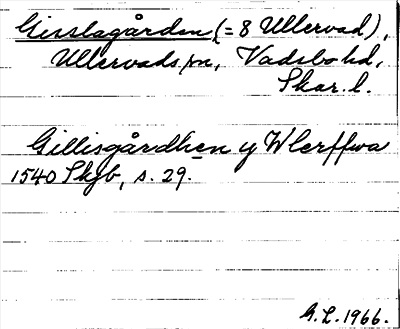 Gisslagården (= 8 Ullervad),
Ullervads sn, Vadsbo hd,
Skar. l.
Gillisgårdhen y Wlerffwa
1540 Skjb, s. 29.
G. L. 1966.